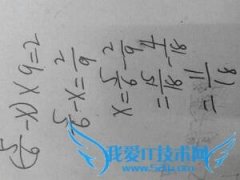 (5/6 - x) × 9 = 2
5/6 - x = 2/9
x = 5/6 - 2/9
= 15/18 - 4/18
= 11/18
我爱IT技术网